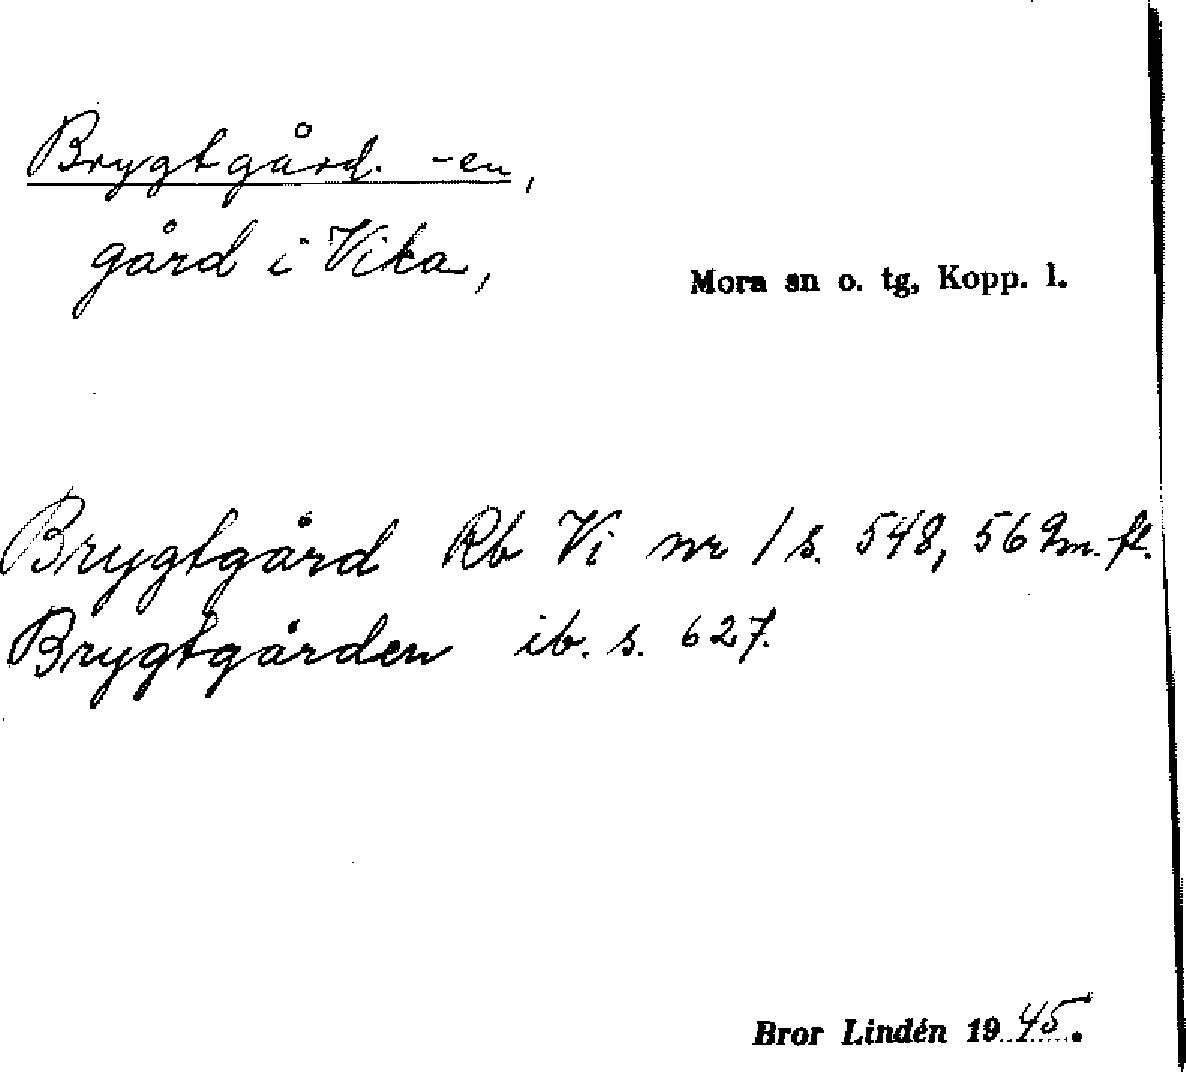 Brygtgård. -en,
gård i Vika,
Mora sn o. tg, Kopp. l.
Brygtgård Rb Vi nr 1 s. 548, 569 m. fl.
Brygtgården ib. s. 627.
Bror Lindén 1945.